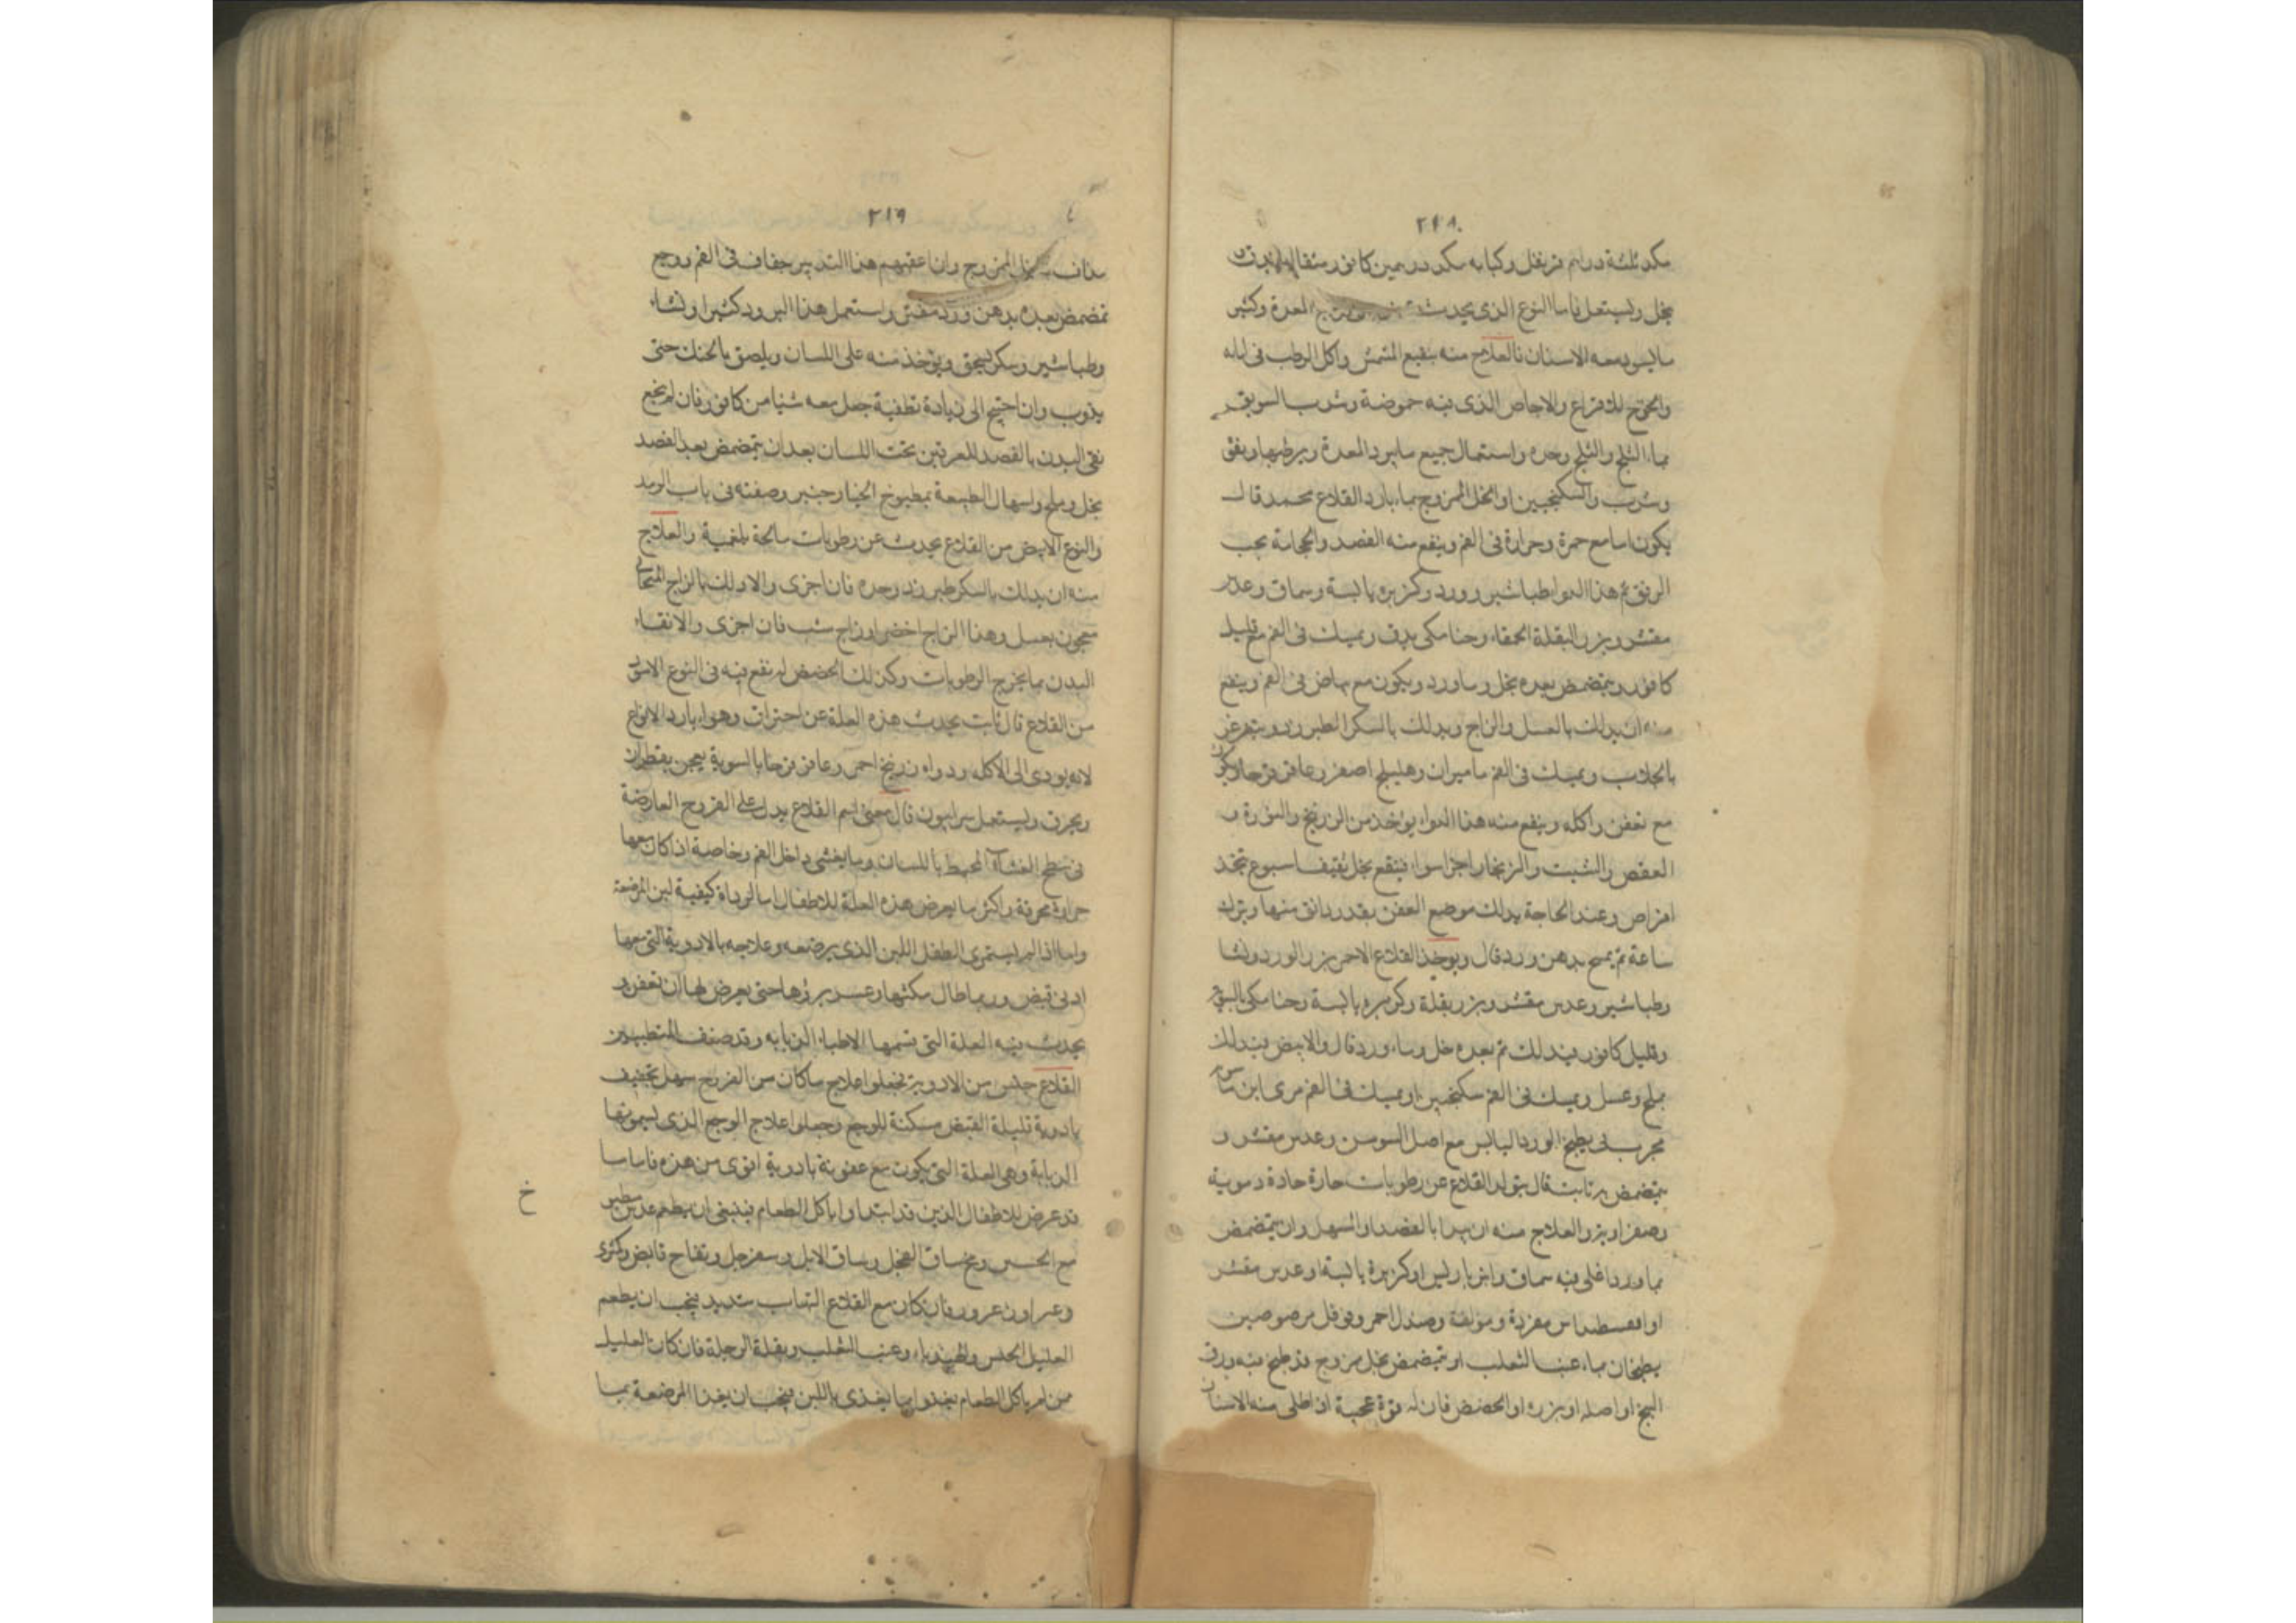 ٢١٨
سكر ثلثة دراهم قرنفل وكبابه سكر درهمين كافور مثقال يدق
بخل ويستعمل فاما النوع الذى يحدث المعدة وكثير
ما يسود معه الاسنان فالعلاج منه بنقيع المشمش واكل الرطب فى ليله
والخوخ للاقراع والاجاص الذى فيه حموضة وشرب السويق
بماء الثلج والثلج وحده واستعمال جميع ما يبرد المعدة ويرطبها ويفتق
وشرب والسكنجبين او الخل الممزوج بماء بارد القلاع محمد قال
يكون اما مع حمرة وحرارة فى الفم وينفع منه الفصد والحجامة يجب
الرفق ثم هذا الدوا طباشير وورد وكزبره يابسة وسماق وعدس
مقشر وبزر البقلة الحمقاء وحنا مكى يدق ويمسك فى الفم مع قليل
كافور ويتمضمض بعده بخل وماورد ويكون مع بياض فى الفم وينفع
منه ان يدلك بالعسل والزاج ويدلك بالسكر الطبرزد ويتغرغر
بالجلاب ويمسك فى الفم ماميران وهليلج اصفر وعاقرقرحا ويكون
مع تعفن واكله وينفع منه هذا الدواء يوخذ من الزرنيخ والنورة و
العفص والشبت والزنجار اجزا سوا فينقع بخل ثقيف اسبوع تتخذ
اقراص وعند الحاجة يدلك موضع العفن بقدر دانق منها ويترك
ساعة ثم يمسح بدهن ورد قال ويوخذ القلاع الاحمر بزر الورد ونشا
وطباشير وعدس مقشر وبزر بقلة وكزبره يابسة وحنا مكى بالسوية
وقليل كافور فيدلك ثم بعده خل وماء ورد قال والابيض يدلك
بملح وعسل ويمسك فى الفم سكنجبين او يمسك فى الفم مرى ابن ماسويه
مجرب لى يطبخ الورد اليابس مع اصل السوسن وعدس مقشر و
يتمضمض به ثابت قال يتولد القلاع عن رطوبات حارة حادة دموية
وصفراوية والعلاج منه ان يبدا بالفصد او المسهل وان يتمضمض
بماورد اغلى فيه سماق وانبرباريس او كزبرة يابسة او عدس مقشر
او مفردة ومولفة وصندل احمر وفوفل مرضوضين
يطبخان بماء عنب الثعلب او يتمضمض بخل ممزوج قد طبخ فيه ورق
البنج او اصله او بزره او الحضض فان له قوة عجيبة اذا طلى منه الاسنان
٢١٩
مداف بالخل الممزوج وان اعقبهم هذا التدبير جفاف فى الفم ووجع
تمضمض بعده بدهن ورد مفتر واستعمل هذا البرود كثيرا ونشاء
وطباشير وسكر يسحق ويوخذ منه على اللسان ويلصق بالحنك حتى
يذوب وان احتيج الى زيادة تطفية جعل معه شيا من كافور فان لم ينجع
نقى البدن بالفصد للعرقين تحت اللسان بعد ان يتمضمض بعد الفصد
بخل وملح واسهال الطبيعة بمطبوخ الخيارجنبر وصفته فى باب الرمد
والنوع الابيض من القلاع يحدث عن رطوبات مالحة بلغمية والعلاج
منه ان يدلك بالسكر طبرزد وحده فان اجزى والا دلك بالزاج
معجون بعسل وهذا الزاج اخضر او زاج شب فان اجزى والا نقاء
البدن بما يخرج الرطوبات وكذلك الحضض له نفع فيه فى النوع الاسود
من القلاع قال ثابت يحدث هذه العلة عن احتراق وهو اردا الانواع
لانه يودى الى الاكله ودواه زرنيخ احمر وعاقرقرحا بالسوية يعجن بقطران
ويحرق ويستعمل سرابيون قال معنى اسم القلاع يدل على القروح العارضة
فى سطح الغشاء المحيط باللسان وما يغشى داخل الفم وخاصة اذا كان معها
حرارة محرقة واكثر ما يعرض هذه العلة للاطفال اما لرداة كيفية لبن المرضعة
واما اذا لم يستمرى الطفل اللبن الذى يرضعه وعلاجه بالادوية التى معها
ادنى قبض وربما طال مكثها وعسر بروها حتى يعرض لها ان تعفن و
يحدث فيه العلة التى تسمها الاطباء الذبابه وقد صنف المتطببون
القلاع جنس من الادوية تجعلوا علاج ما كان من القروح سهل تجفيف
بادوية قليلة القبض مسكنة للوجع وجعلوا علاج الوجع الذى يسمونها
الذبابة وهى العلة التى يكون مع عفونة بادوية اقوى من هذه فاما ما
قد عرض للاطفال الذين قد ابتداوا باكل الطعام فينبغى ان يطعم عدس
مع الخبز ومخ ساق العجل وساق الايل وسفرجل وتفاح قابض وكمثرى
وعرور فان كان مع القلاع التهاب شديد فيجب ان يطعم
العليل الخس والهندباء وعنب الثعلب وبقلة الرجلة فان كان العليل
من لم ياكل الطعام يغذوا بما يغذى باللبن فيجب ان يغذا المرضعة بما
خ